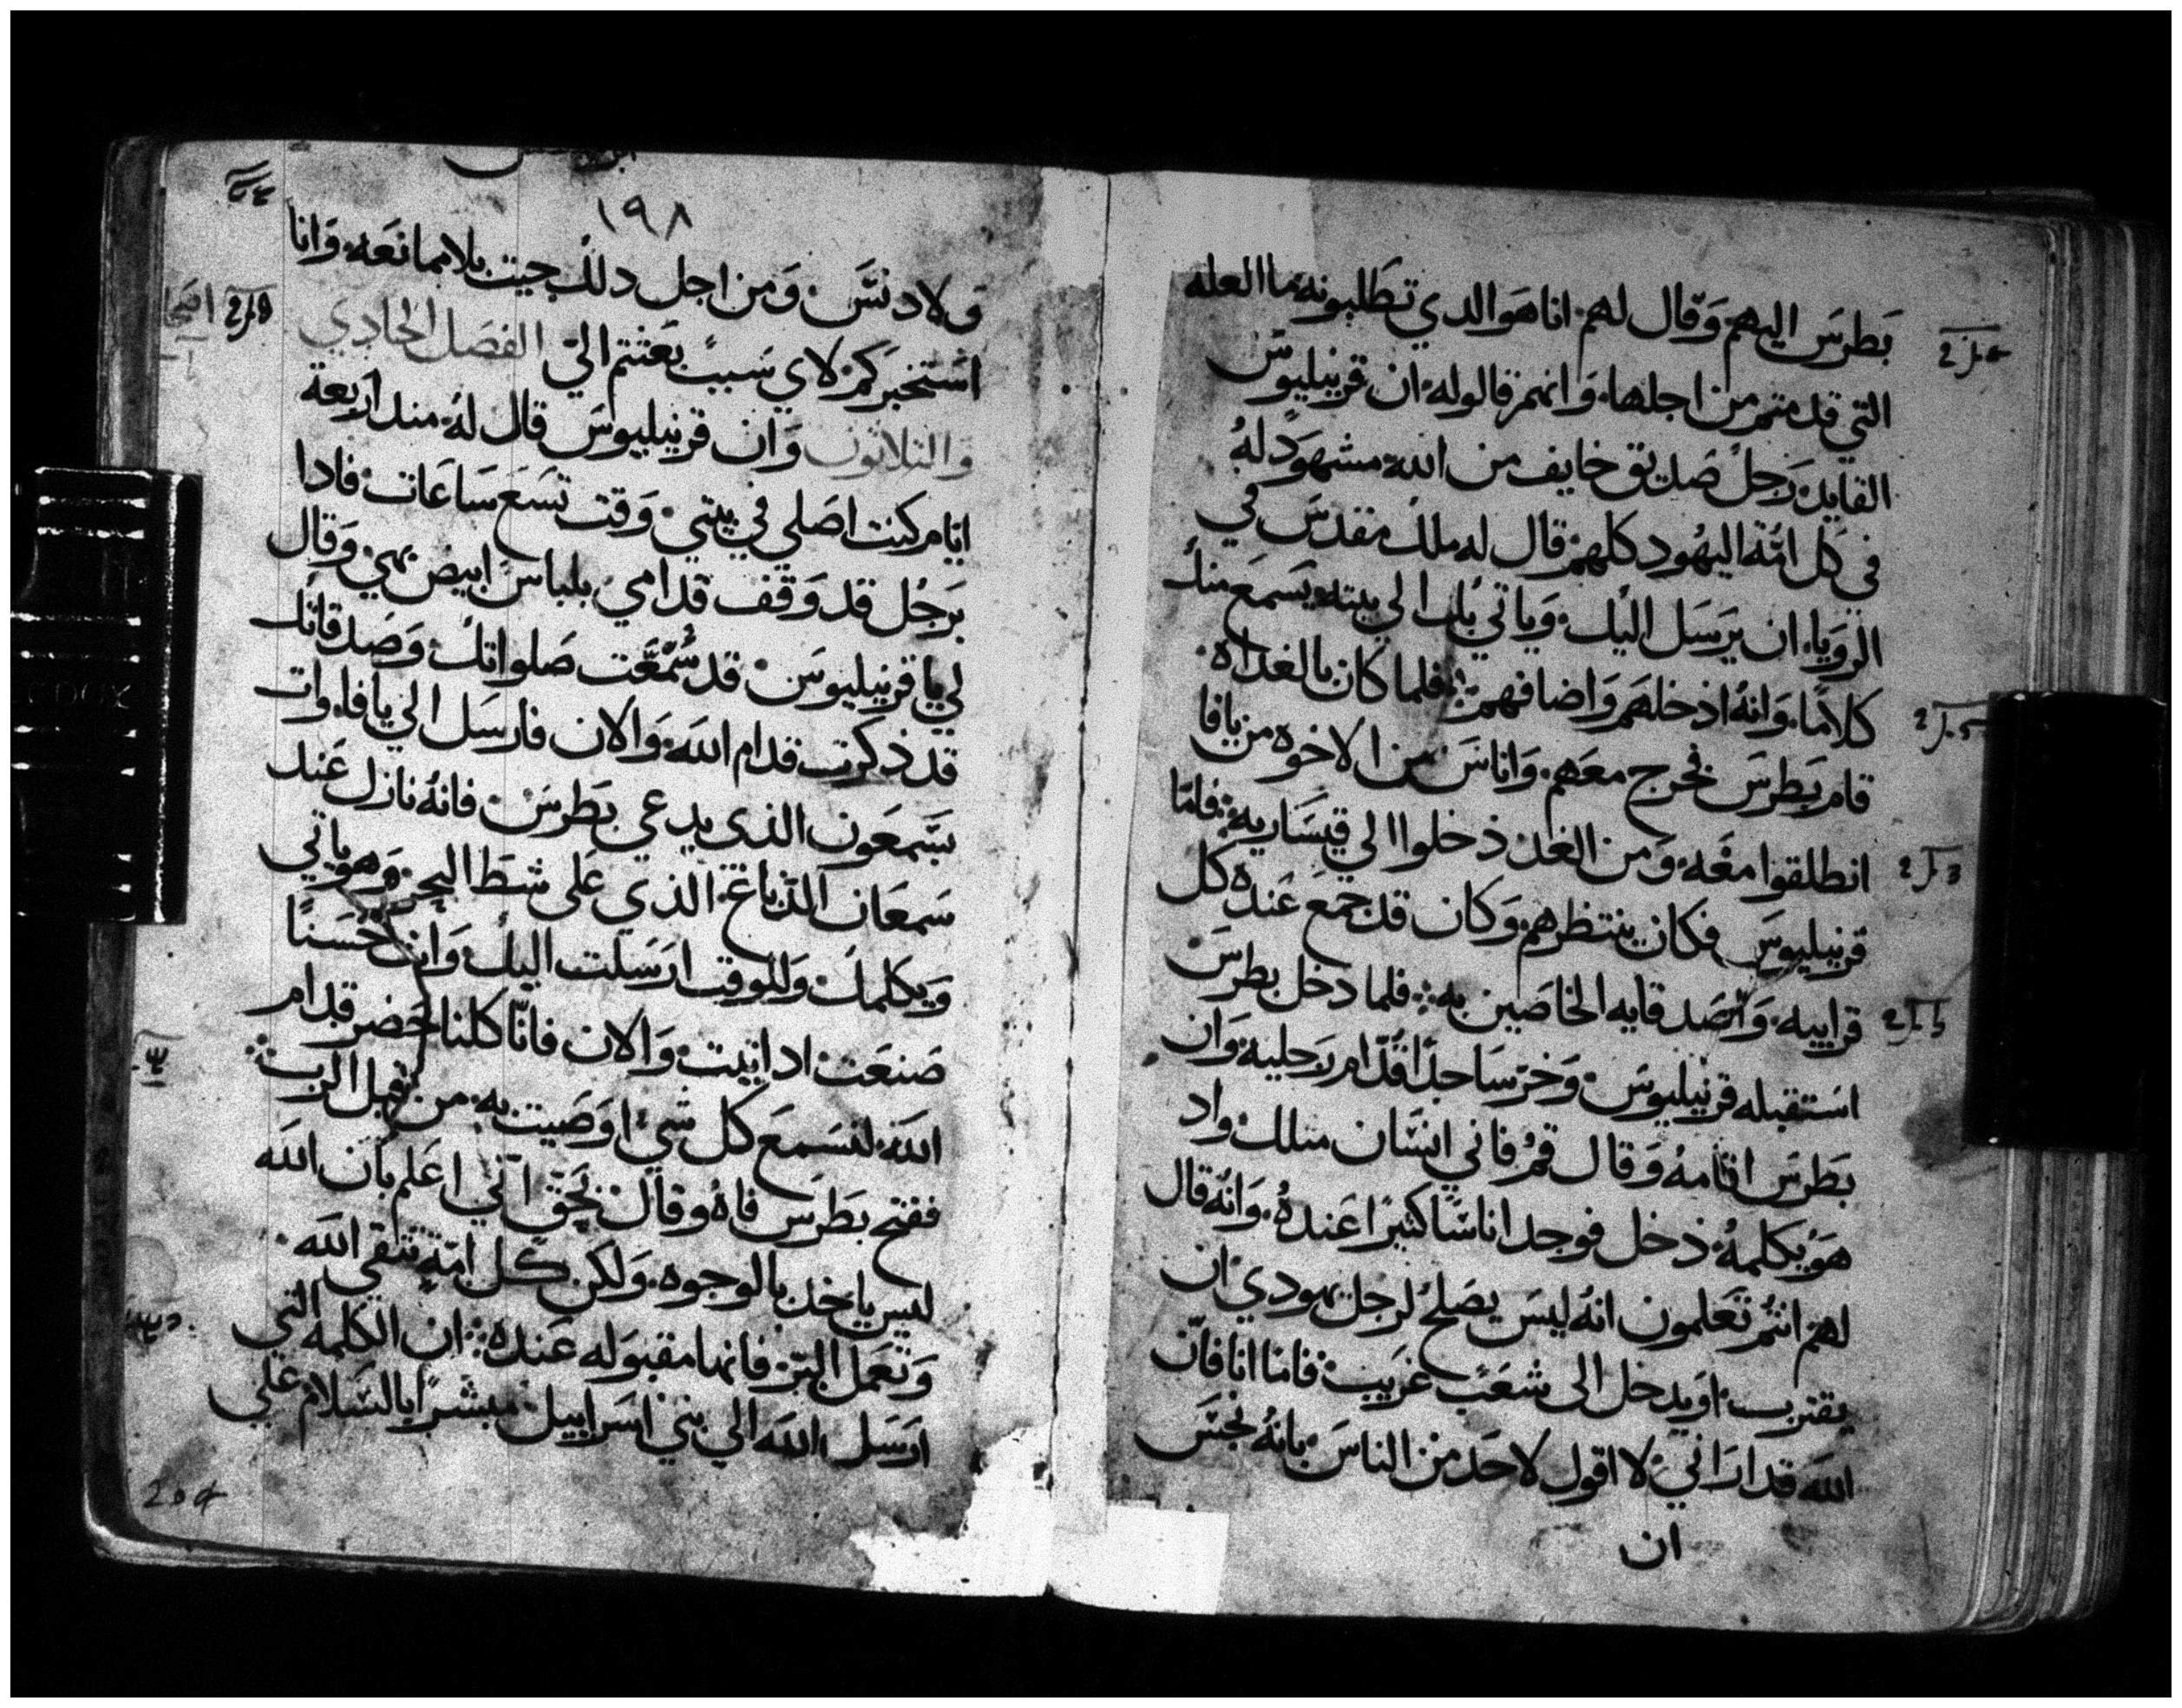 بطرس اليهم وقال لهم انا هو الدي تطلبونه ما العله
التي قدمتم من اجلها وانهم قالوا له ان قرنيليوس
القايد رجل صديق خايف من الله مشهود له
في كل امة اليهود كلهم قال له ملك مقدس في
الرويا ان يرسل اليك وياتي بك الي بيته يسمع منك
كلاما وانه اذخلهم واضافهم فلما كان بالغداه
قام بطرس فخرج معهم واناس من الاخوه من يافا
انطلقوا معه ومن الغد ذخلوا الي قيساريه فاما
قرنيليوس فكان ينتظرهم وكان قد جمع عنده كل
قراييه واصدقايه الخاصين به فلما دخل بطرس
استقبله قرنيليوس وخر ساجدا قدام رجليه وان
بطرس اقامه وقال قم فاني انسان مثلك واد
هو يكلمه ذخل فوجد اناسا كثيرا عنده وانه قال
لهم انتم تعلمون انه ليس يصلح لرجل يهودي ان
يقترب او يدخل الى شعب غريب فاما انا فان
الله قد اراني لا اقول لاحد من الناس بانه نجس
ان
١٩٨
ولا دنس ومن اجل دلك جيت بلا ممانعه وانا
استخبركم لاي سبب بعتتم الي الفصل الحادي
والثلاثون وان قرنيليوس قال له مند اربعة
ايام كنت اصلي في بيتي وقت تسع ساعات فادا
برجل قد وقف قدامي بلباس ابيض بهي وقال
لي يا قرنيليوس قد سمعت صلواتك وصدقاتك
قد ذكرت قدام الله والان فارسل الي يافا وات
بسمعون الذي يدعي بطرس فانه نازل عند
سمعان الدباغ الذي على شط البحر وهو ياتي
ويكلمك وللوقت ارسلت اليك وانت حسنا
صنعت اد اتيت والان فانا كلنا حضر قدام
الله لنسمع كل شي اوصيت به من قبل الرب
ففتح بطرس فاه وقال بحق انني اعلم بان الله
ليس ياخد بالوجوه ولكن كل امة تتقي الله
وتعمل البر فانها مقبوله عنده ان الكلمه التي
ارسل الله الي بني اسراييل مبشرا بالسلام علي
204